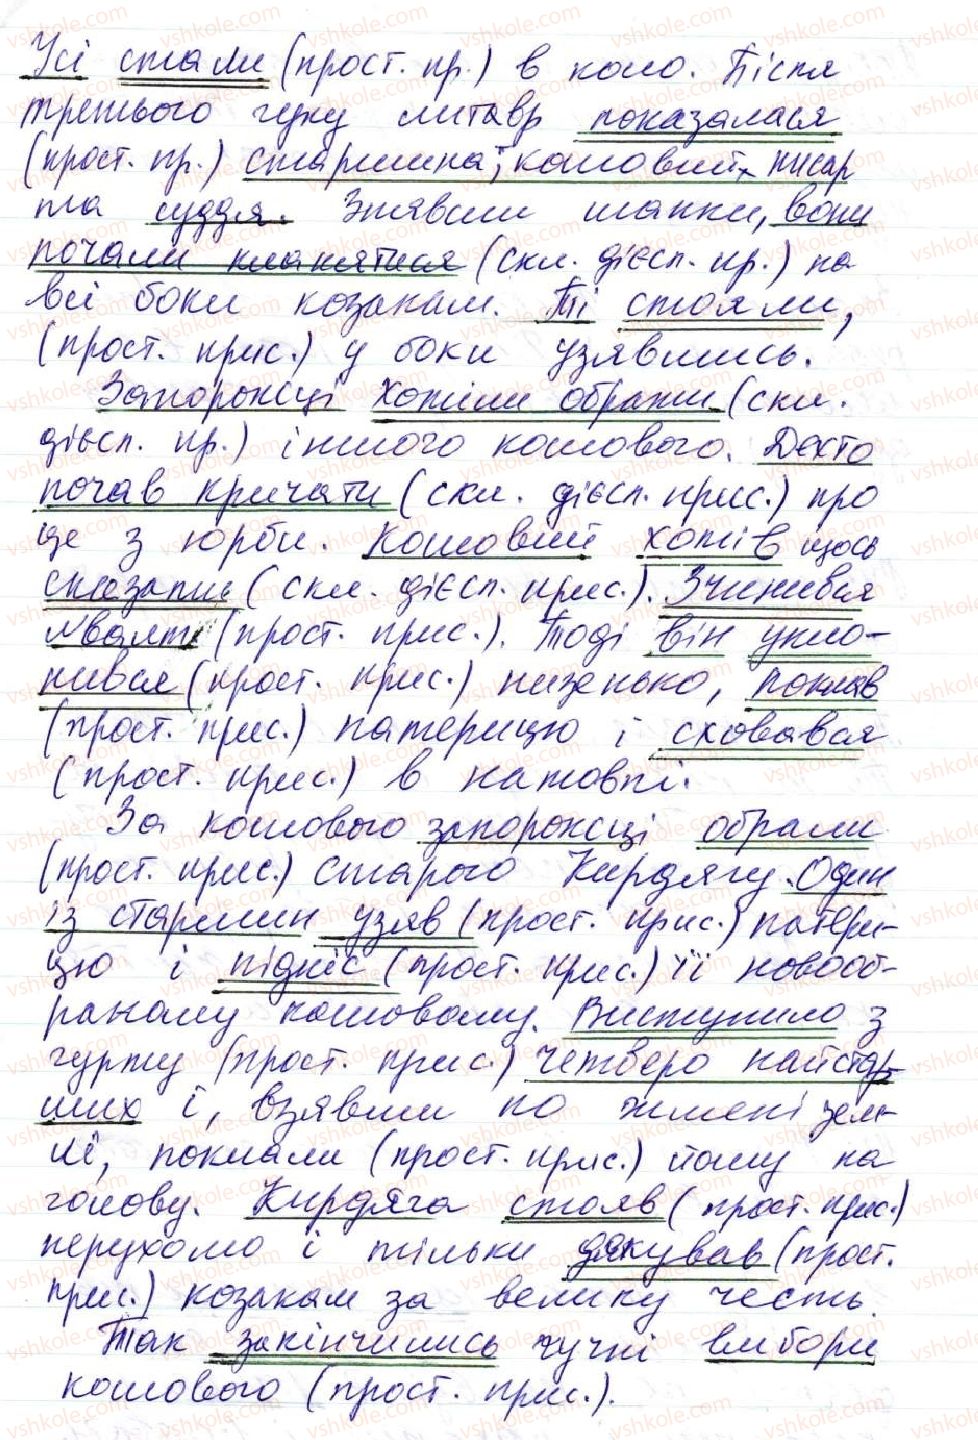 Усі стали (прост. пр.) в коло. Після
третього гуку литавр показалася
(прост. пр.) старшина; кошовий, писар
та суддя. Знявши шапки, вони
почали кланятися (скл. дієсл. пр.) на
всі боки козакам. Ті стояли,
(прост. прис.) у боки узявшись.
Запорожці хотіли обрати (скл.
дієсл. пр.) іншого кошового. Дехто
почав кричати (скл. дієсл. прис.) про
це з юрби. Кошовий хотів щось
сказати (скл. дієсл. прис.). Зчинився
ґвалт (прост. прис.). Тоді він укло-
нився (прост. прис.) низенько, поклав
(прост. прис.) патерицю і сховався
(прост. прис.) в натовпі.
За кошового запорожці обрали
(прост. прис.) старого Кирдягу. Один
із старшин узяв (прост. прис.) патери-
цю і підніс (прост. прис.) її новооб-
раному кошовому. Виступило з
гурту (прост. прис.) четверо найстар-
ших і, взявши по жмені зем-
лі, поклали (прост. прис.) йому на
голову. Кирдяга стояв (прост. прис.)
нерухомо і тільки дякував (прост.
прис.) козакам за велику честь.
Так закінчились гучні вибори
кошового (прост. прис.).